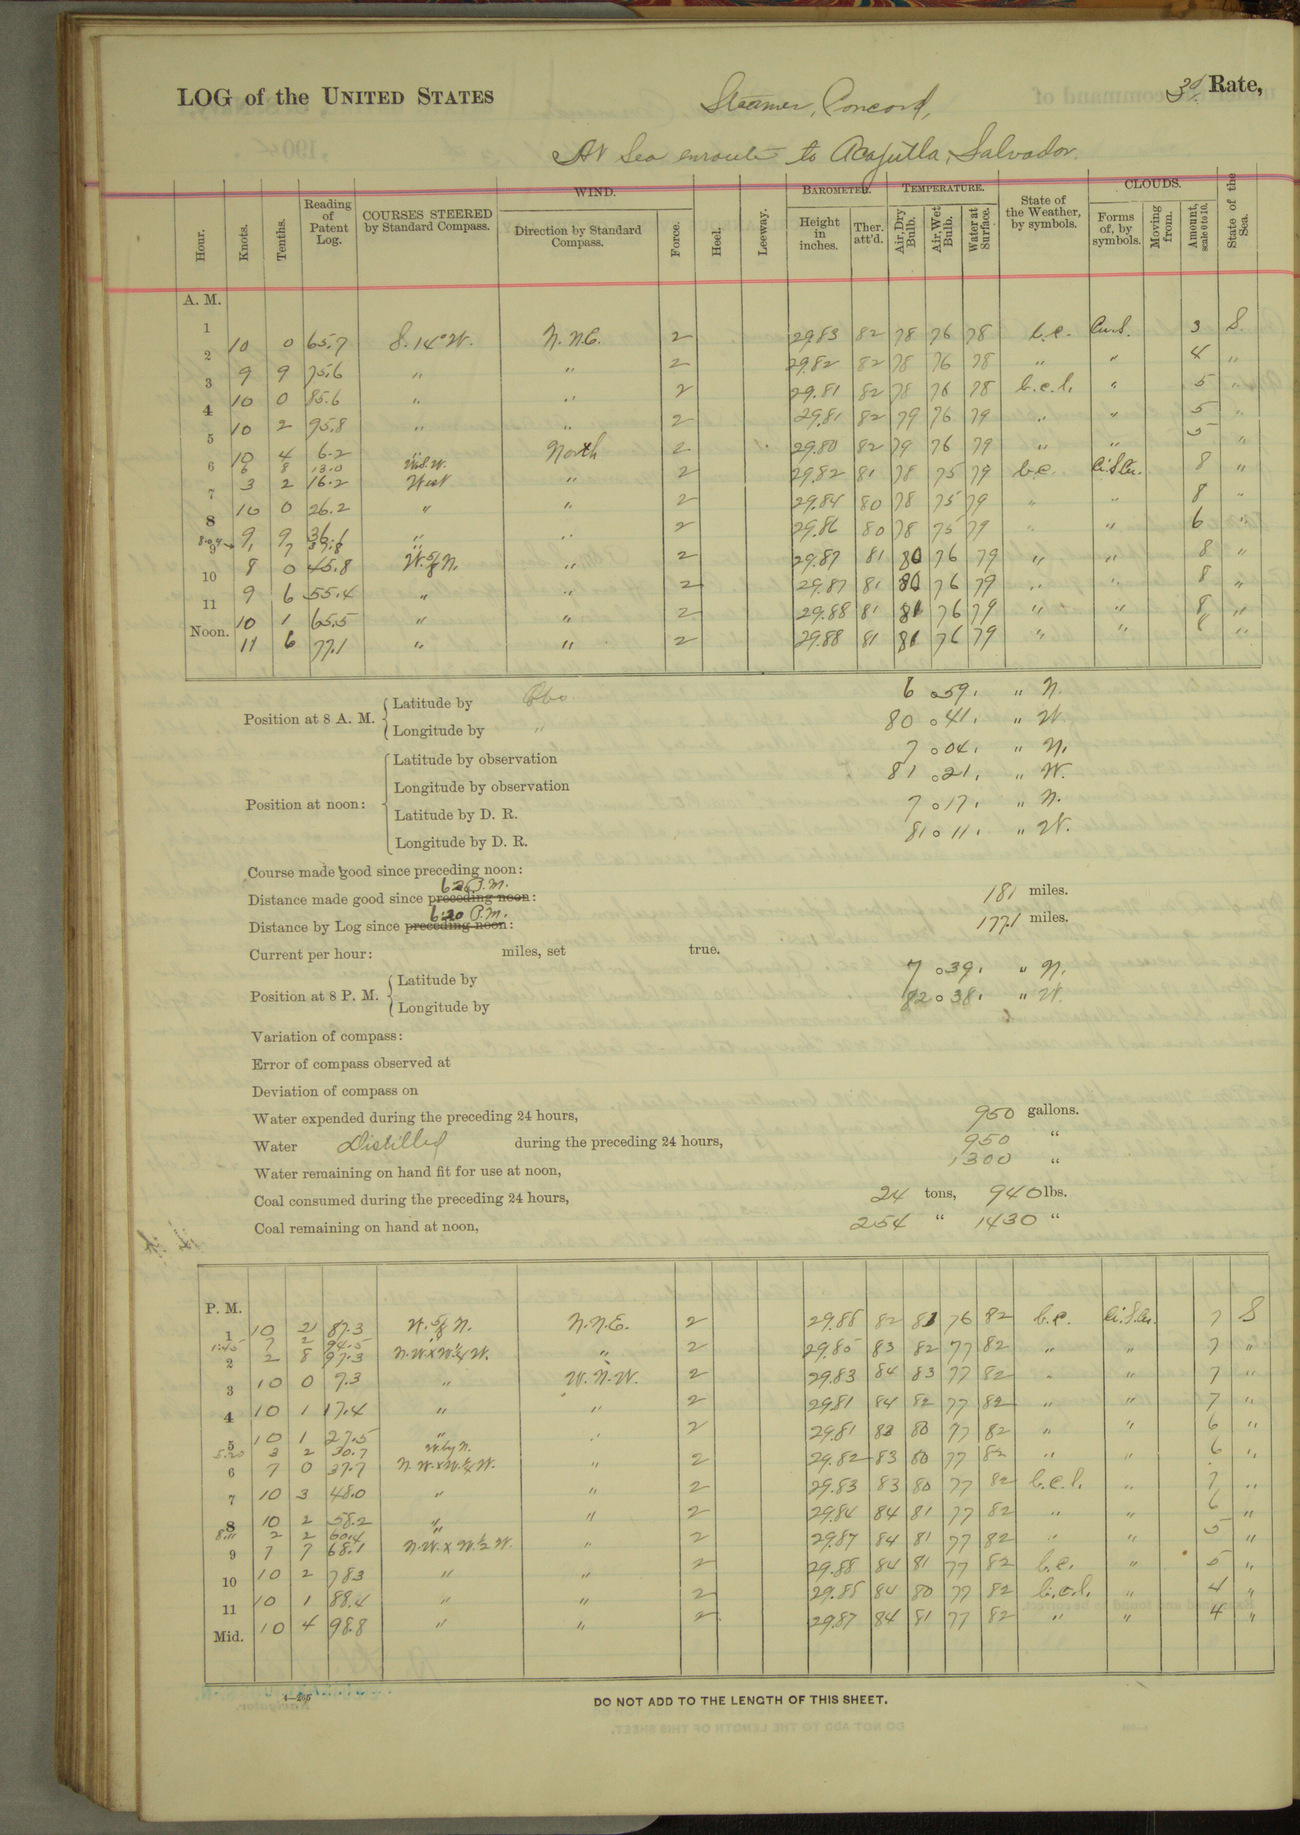 LOG of the UNITED STATES Steamer, Concord, 3d Rate,
At Sea enroute to Acajutla, Salvador.
Hour. Knots. Tenths. Reading of Patent Log. COURSES STEERED by Standard Compass. WIND. Direction by Standard Compass. Force. Heel. Leeway. BAROMETER. Height in inches. Ther. att'd. TEMPERATURE. Air, Dry Bulb. Air, Wet Bulb. Water at Surface. State of the Weather, by symbols. CLOUDS. Forms of, by symbols. Moving from. Amount, scale 0 to 10. State of the Sea.
A. M.
1 10 0 65.7 S. 14° W. N.N.E. 2 29.83 82 78 76 78 b.c. Cu.S. 3 S
2 9 9 75.6 " " 2 29.82 82 78 76 78 " " 4 "
3 10 0 85.6 " " 2 29.81 82 78 76 78 b.c.l. " 5 "
4 10 2 95.8 " " 2 29.81 82 79 76 79 " " 5 "
5 10 4 6.2 " North 2 29.80 82 79 76 79 " " 5 "
6 8 13.0 W.S.W.
6 3 2 16.2 West " 2 29.82 81 78 75 79 b.c. Ci.S.Cu. 8 "
7 10 0 26.2 " " 2 29.84 80 78 75 79 " " 8 "
8 9 9 36.1 " " 2 29.86 80 78 75 79 " " 6 "
8.09 1 7 37.8 "
9 8 0 45.8 W. 5/8 N. " 2 29.87 81 80 76 79 " " 8 "
10 9 6 55.4 " " 2 29.87 81 80 76 79 " " 8 "
11 10 1 65.5 " " 2 29.88 81 81 76 79 " " 8 "
Noon. 11 6 77.1 " " 2 29.88 81 81 76 79 " " "
Position at 8 A. M. Latitude by Obs 6 ° 59 ' " N.
Longitude by " 80 ° 41 ' " W.
Position at noon: Latitude by observation 7 ° 04 ' " N.
Longitude by observation 81 ° 21 ' " W.
Latitude by D. R. 7 ° 17 ' " N.
Longitude by D. R. 81 ° 11 ' " W.
Course made good since preceding noon:
Distance made good since preceding noon: P.M. 181 miles.
Distance by Log since preceding noon: 6:20 P.M. 177.1 miles.
Current per hour: miles, set true.
Position at 8 P. M. Latitude by 7 ° 39 ' " N.
Longitude by 82 ° 38 ' " W.
Variation of compass:
Error of compass observed at
Deviation of compass on
Water expended during the preceding 24 hours, 950 gallons.
Water Distilled during the preceding 24 hours, 950 "
Water remaining on hand fit for use at noon, 1300 "
Coal consumed during the preceding 24 hours, 24 tons, 940 lbs.
Coal remaining on hand at noon, 254 " 1430 "
P. M.
1 10 2 87.3 W. 5/8 N. N.N.E. 2 29.88 82 81 76 82 b.c. Ci.S.Cu. 7 S
1:45 7 2 94.5 "
2 2 8 97.3 N.W.xW.¼W. " 2 29.85 83 82 77 82 " " 7 "
3 10 0 7.3 " W.N.W. 2 29.83 84 83 77 82 " " 7 "
4 10 1 17.4 " " 2 29.81 84 82 77 82 " " 7 "
5 10 1 27.5 " " 2 29.81 83 80 77 82 " " 6 "
5.20 3 2 30.7 W. by N.
6 7 0 37.7 N.W.xW.¼W. " 2 29.82 83 80 77 82 " " 6 "
7 10 3 48.0 " " 2 29.83 83 80 77 82 b.c.l. " 7 "
8 10 2 58.2 " " 2 29.84 84 81 77 82 " " 6 "
8.11 2 2 60.4 "
9 7 7 68.1 N.W.xW.½W. " 2 29.87 84 81 77 82 " " 5 "
10 10 2 78.3 " " 2 29.88 84 81 77 82 b.c. " 5 "
11 10 1 88.4 " " 2 29.88 84 80 77 82 b.c.l. " 4 "
Mid. 10 4 98.8 " " 2 29.87 84 81 77 82 " " 4 "
DO NOT ADD TO THE LENGTH OF THIS SHEET.